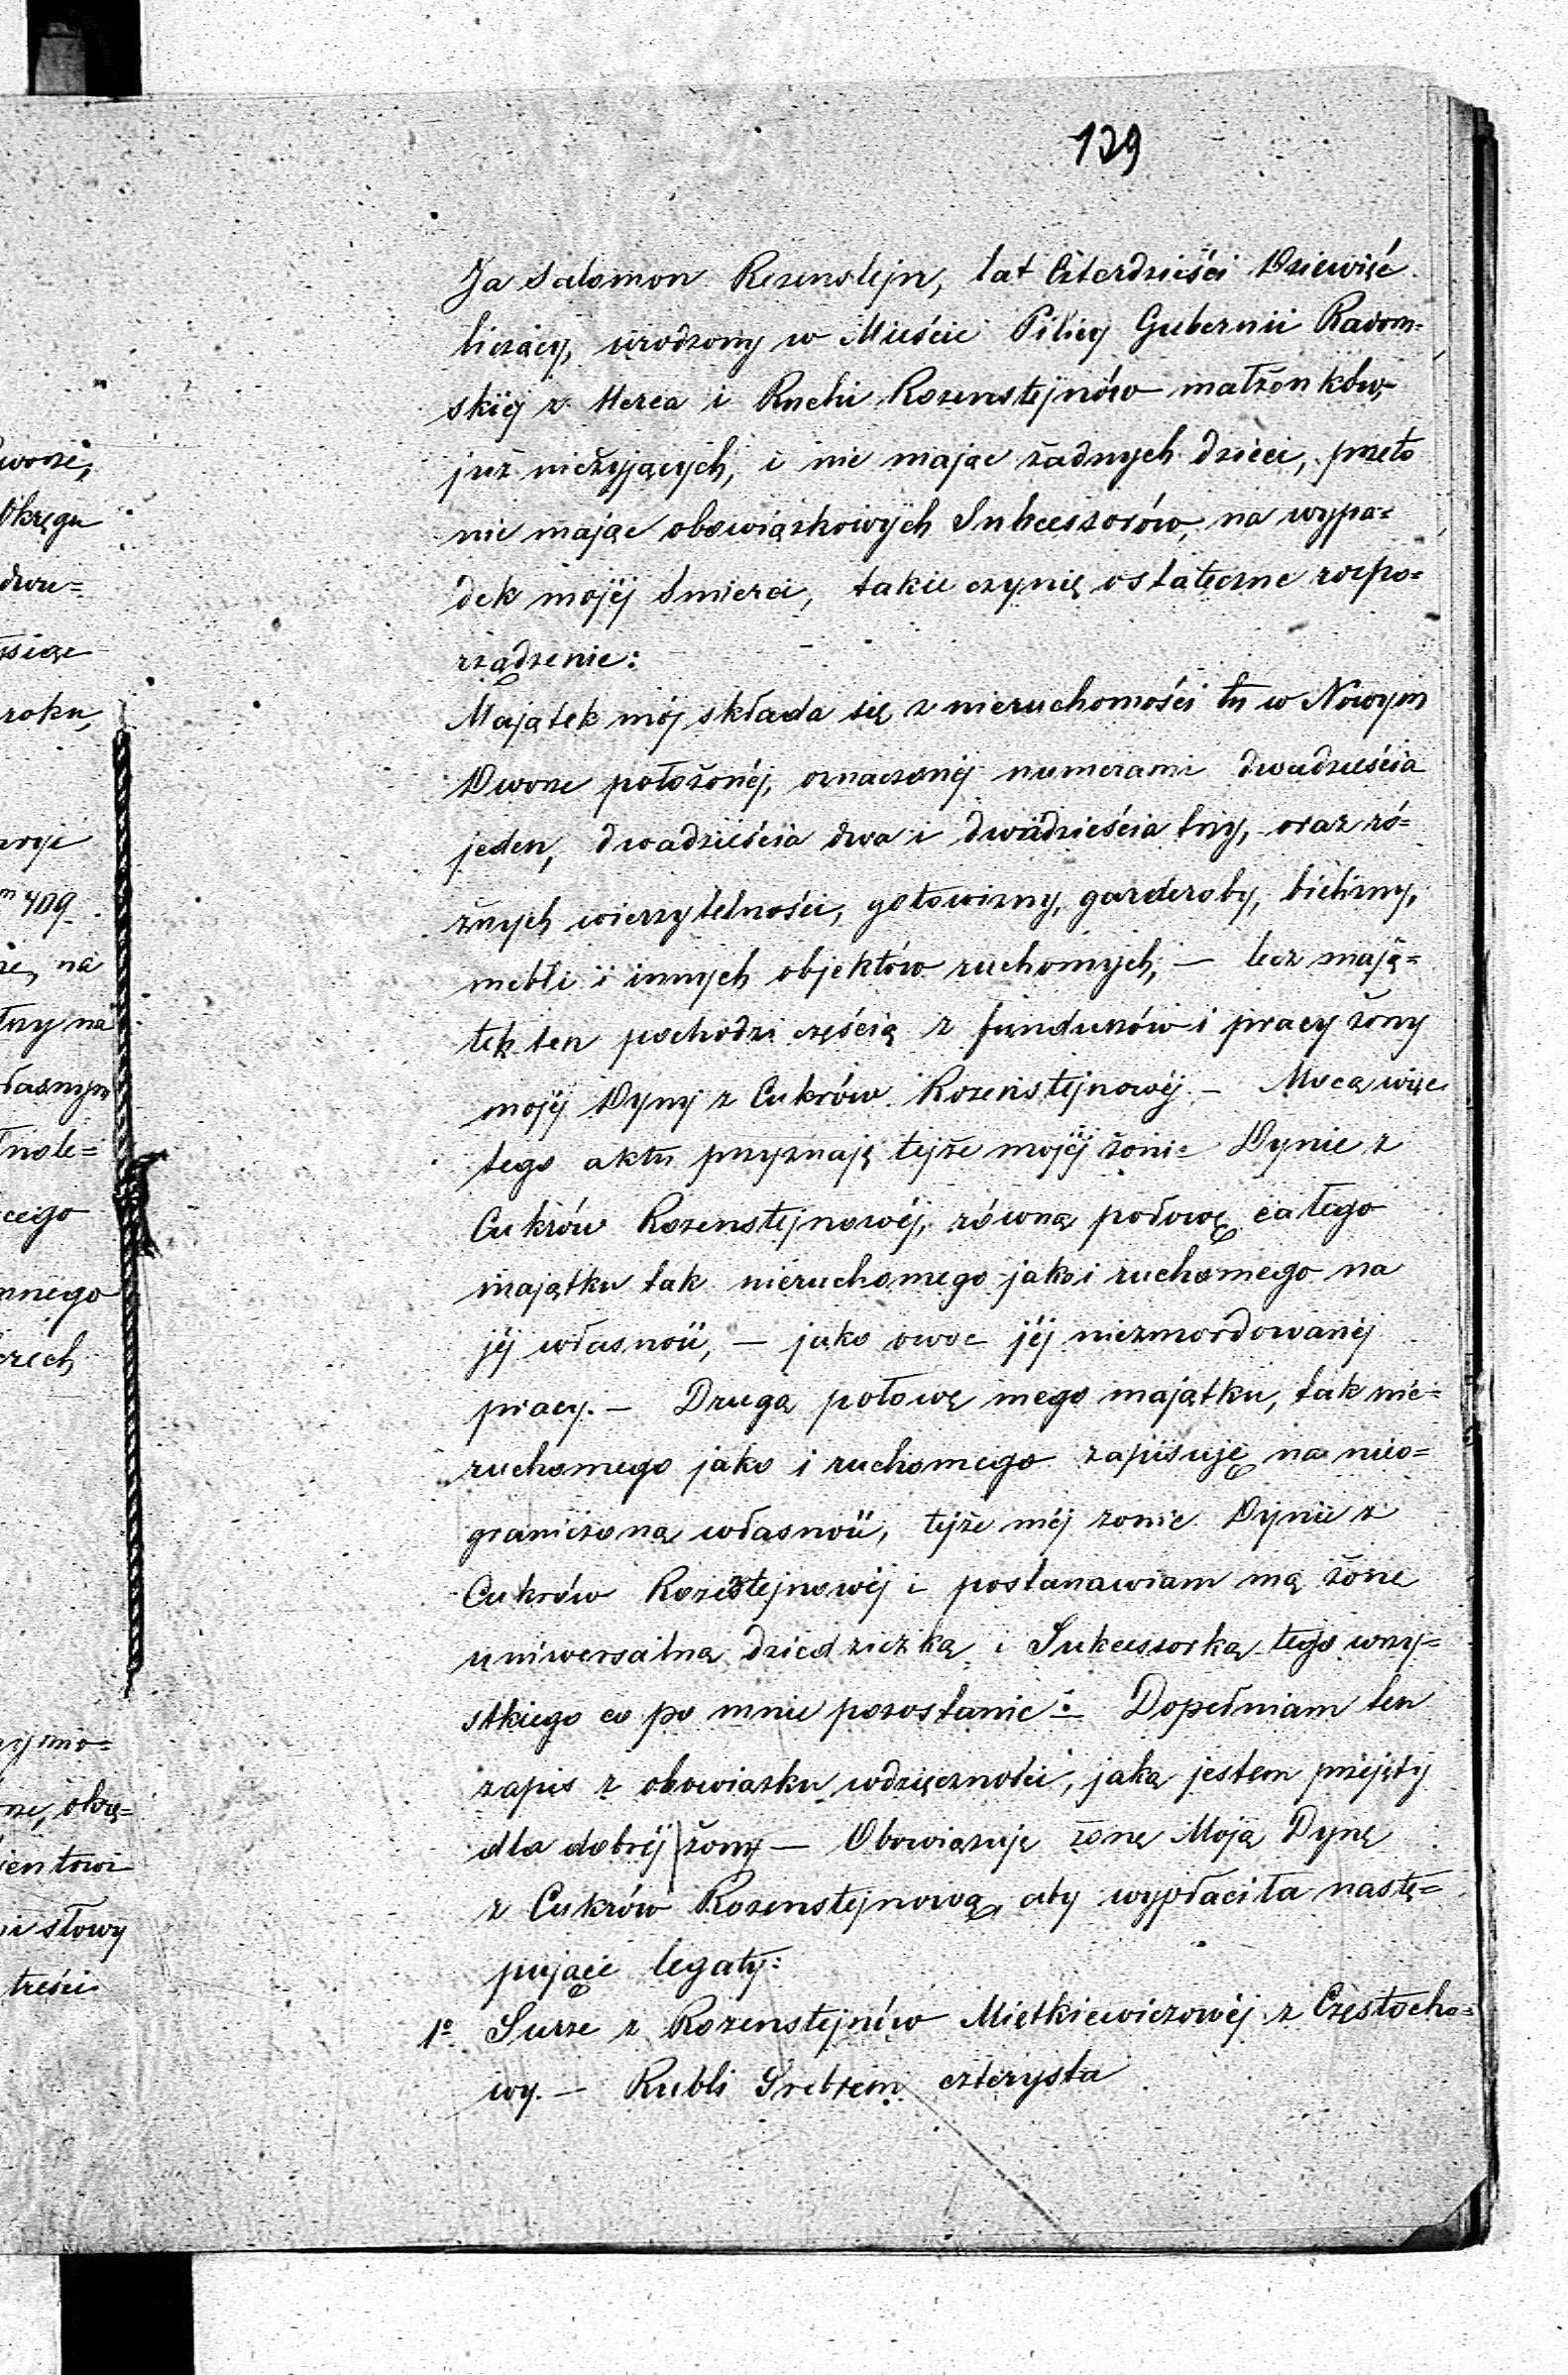 139
Ja Salomon Rozenstejn, lat Czterdzieści Dziewięć
liczący, urodzony w Mieście Pilicy Gubernii Radom-
skiéj z Herca i Ruchi Rozenstejnów małżonków
już nieżyjących, i nie mając żadnych dzieci, przeto
nie mając obowiązkowych Sukcessorów, na wypa=
dek mojéj śmierci, takie czynię ostateczne rozpo=
rządzenie:
Majątek mój składa się z nieruchomości tu w Nowym
Dworze położonéj, oznaczonéj numerami dwadzieścia
jeden, dwadzieścia dwa i dwadzieścia trzy, oraz ró=
żnych wierzytelności, gotowizny, garderoby, bielizny,
mebli i innych objektów ruchomych; — lecz mają=
tek ten pochodzi częścią z funduszów i pracy żony
mojéj Dyny z Cukrów Rozenstejnowéj. — Mocą więc
tego aktu przyznaję tejże mojéj żonie Dynie z
Cukrów Rozenstejnowéj, równą połowę całego
majątku tak nieruchomego jako i ruchomego na
jéj własność, — jako owoc jéj niezmordowanéj
pracy. — Drugą połowę mego majątku, tak nie=
ruchomego jako i ruchomego zapisuję na nieo=
graniczoną własność, tejże méj żonie Dynie z
Cukrów Rozenstejnowéj i postanawiam mą żonę
uniwersalną dziedziczką i Sukcessorką tego wszy=
stkiego co po mnie pozostanie. — Dopełniam ten
zapis z obowiązku wdzięczności, jaką jestem przejęty
dla dobréj żony — Obowiązuję żonę Moją Dynę
z Cukrów Rozenstejnową, aby wypłaciła nastę=
pujące legaty:
1º Surze z Rozenstejnów Miętkiewiczowéj z Częstocho=
wy. — Rubli Srebrem czterysta
Okręgu
roku,
409
na
cego
mnego
słowy
treści